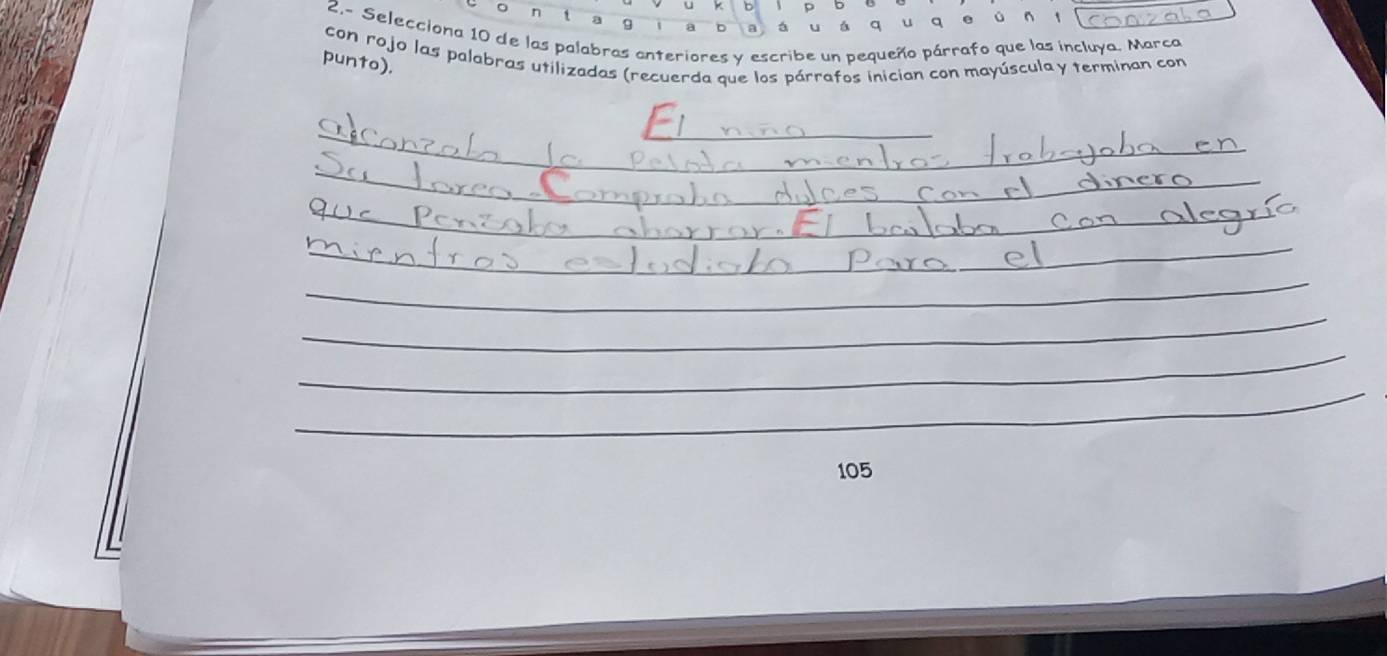 o n t a g i a b a á u á q u q e ú n t conzaba
2.- Selecciona 10 de las palabras anteriores y escribe un pequeño párrafo que las incluya. Marca
con rojo las palabras utilizadas (recuerda que los párrafos inician con mayúscula y terminan con
punto).
El niño
alconzaba la pelota mientras trabajaba en
Su tarea. Compraba dulces con el dinero
que Penzaba ahorrar. El bailaba con alegría
mientras estudiaba Para el
105